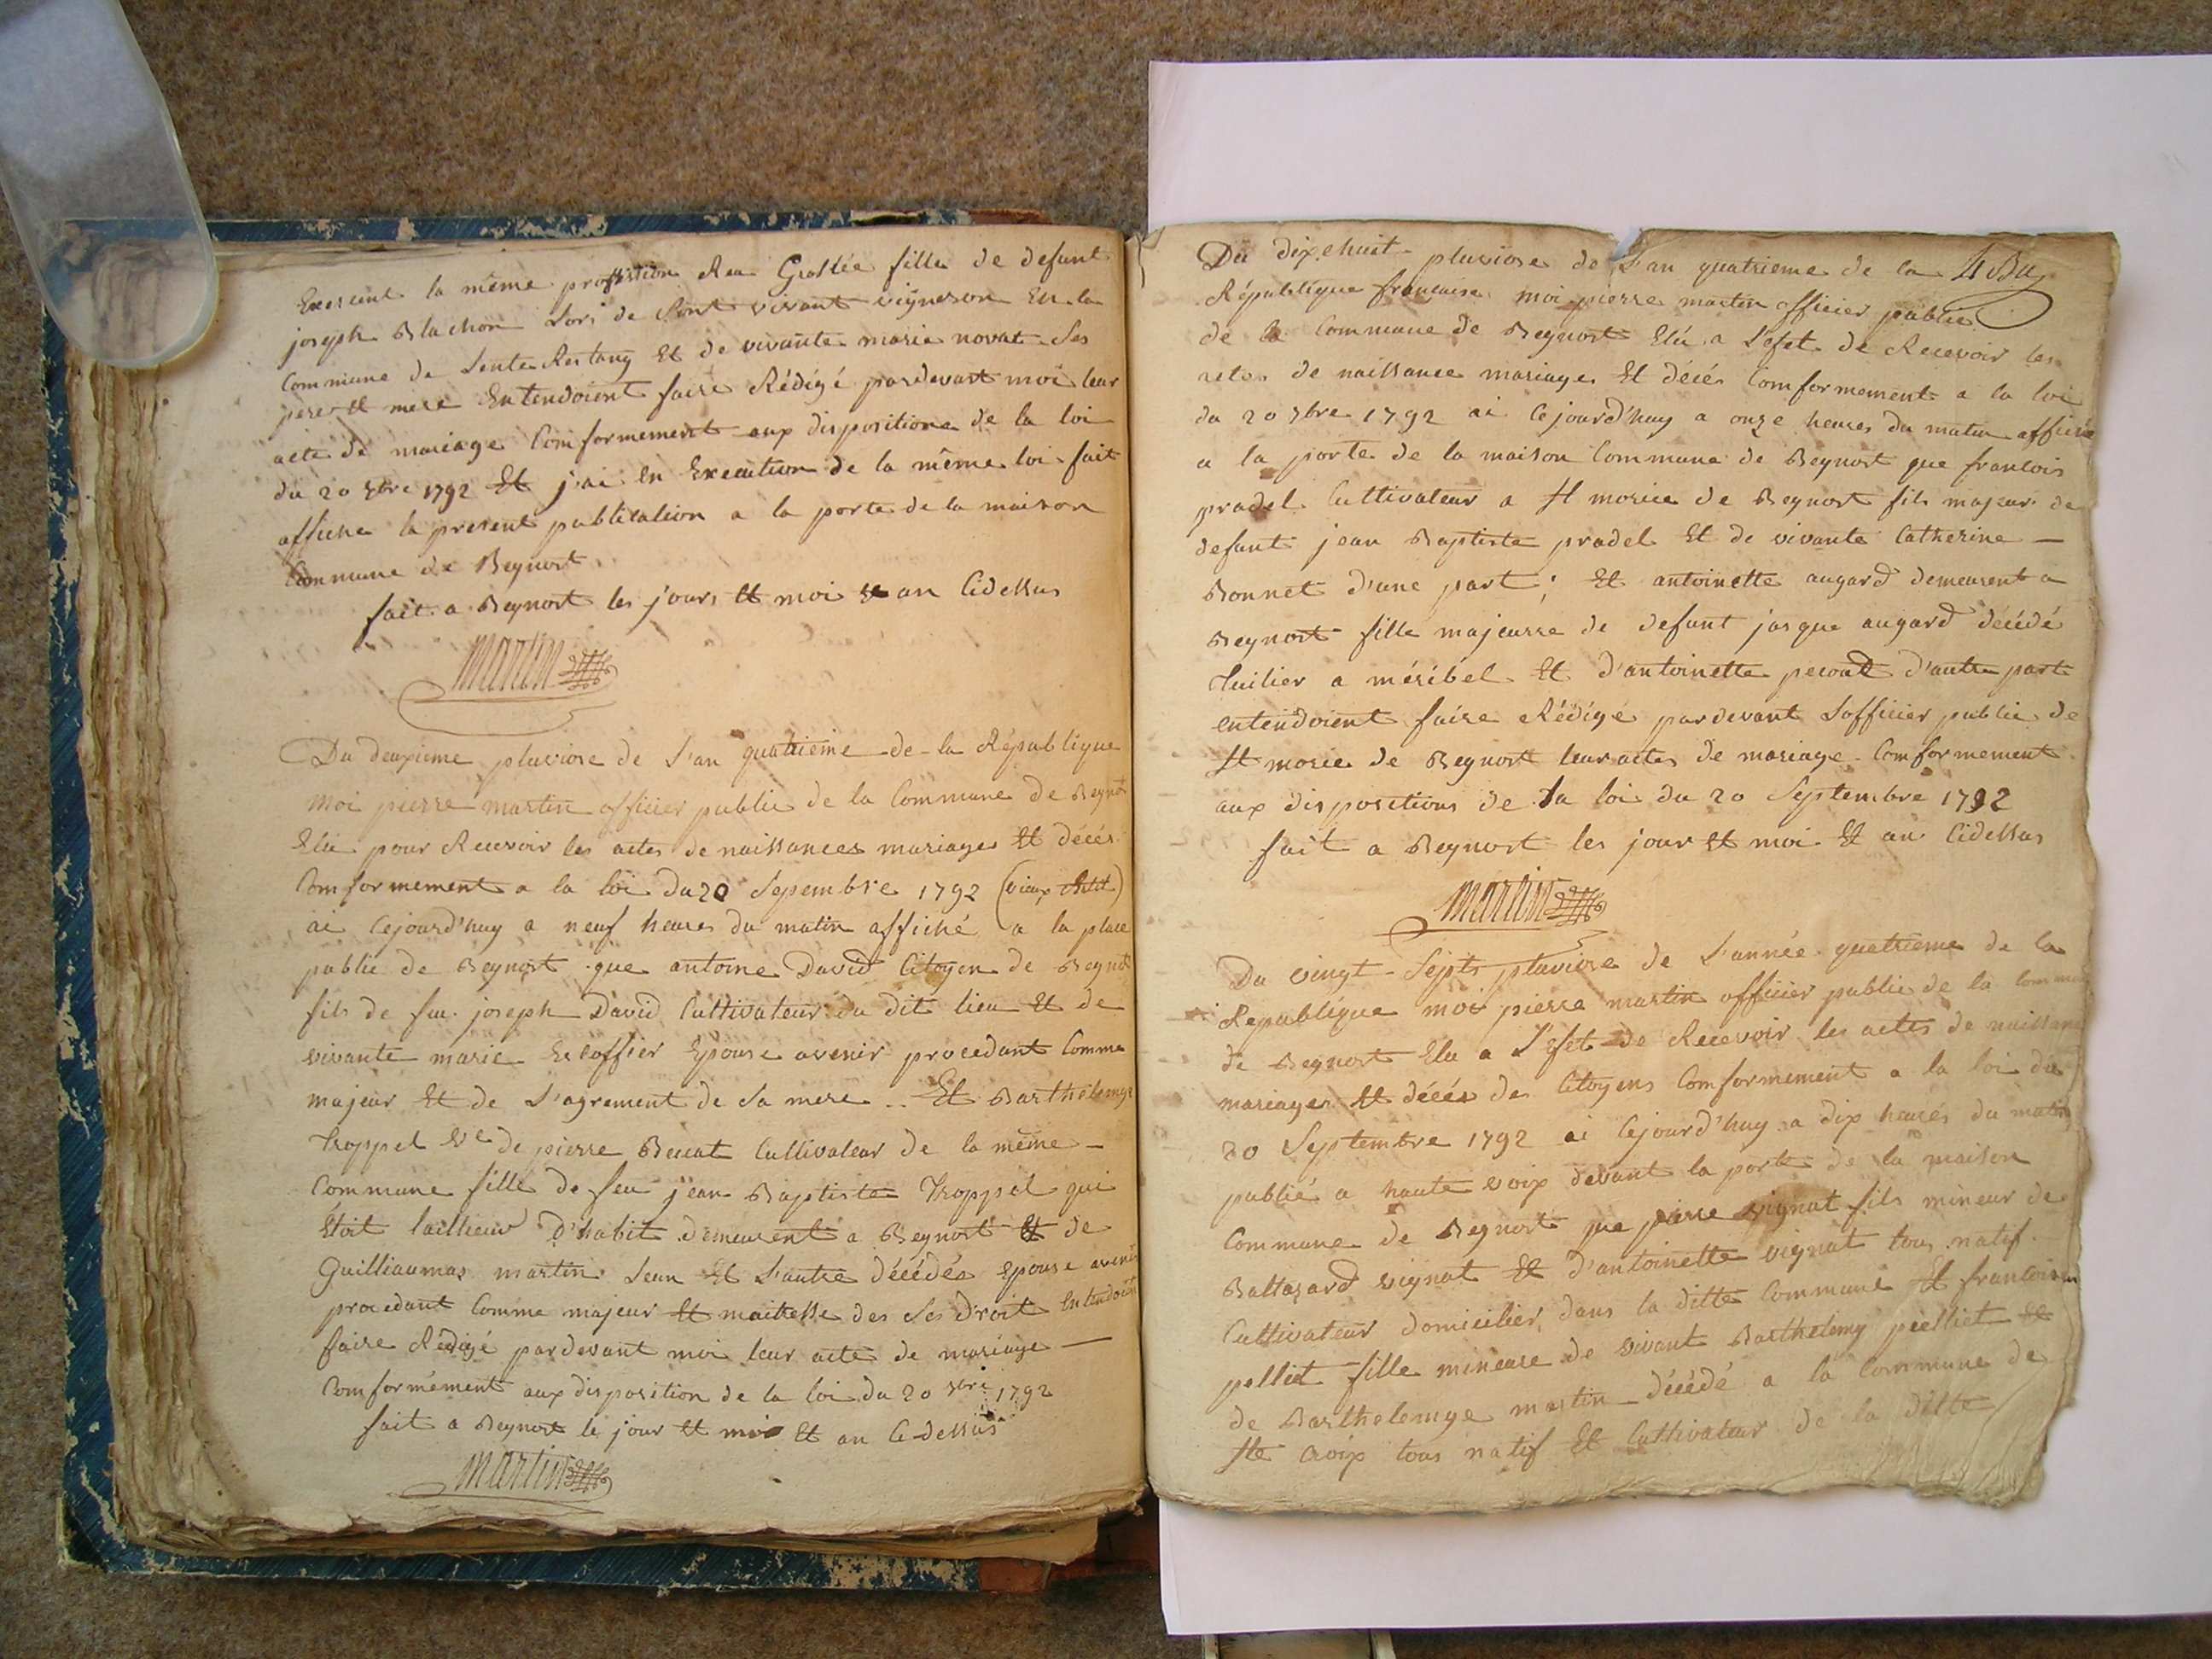 Exercent la même proffistion Rea Groslée fille de defunt
joseph Blachon Lors de Sont vivant vigneron En la
Commune de Sente Restang Et de vivante marie novat Ses
pere Et mere Entendoient faire Rédigé pardevant moi leur
acte de mariage Comformement aux dispositions de la loi
du 20 7bre 1792 Et j'ai En Execution de la même loi fait
affiche la present publication a la porte de la maison
Commune de Beynost
fait a Beynost les jours Et moi an Cidessus
martin
Du deuxieme pluviose de L'an quatrieme de la République
moi pierre martin officier public de la Commune de Beynost
Elu pour Recevoir les actes de naissances mariages Et décés
Comformement a la loi du 20 Sepembre 1792 (vieux
ai Cejourd'huy a neuf heures du matin affiché a la place
public de Beynost que antoine David Citoyen de Beynost
fils de feu joseph David Cultivateur du dit lieu Et de
vivante marie Escoffier Epouse avenir procedant Comme
majeur Et de L'agrement de Sa mere .. Et Barthelemye
Troppel Ve de pierre Beucat Cultivateur de la même –
Commune fille de feu jean Baptiste Troppel qui
Etoit taillieur D'habit demeurent a Beynost Et de
Guilliaumas martin Leun Et L'autre décédés Epouse avenir
procedant Comme majeur Et maitresse des Ses Droit Entendoient
faire Rédigé pardevant moi leur acte de mariage —
Comformément aux disposition de la loi du 20 7bre 1792
fait a Beynost le jour Et moi Et an Ce-dessus
martin
Du dixehuit pluviose de L'an quatrieme de la
République francaise moi pierre martin officier public
de la Commune de Beynost Elu a L'efet de Recevoir les
actes de naissance mariages Et décés Comformement a la loi
du 20 7bre 1792 ai Cejourd'huy a onze heures du matin affiché
a la porte de la maison Commune de Beynost que francois
pradel Cultivateur a St morice de Beynost fils majeur de
defunt jean Baptiste pradel Et de vivante Catherine —
Bonnet d'une part ; Et antoinette augard demeurent a
Beynost fille majeurre de defunt jasque augard décédé
Tuilier a méribel Et d'antoinette peront d'autre part
entendoient faire Rédigé pardevant Lofficier public de
St morice de Beynost leur actes de mariage Comformement
aux dispositions de la loi du 20 Septembre 1792
fait a Beynost les jour Et moi Et an Cidessus
martin
Du vingt Septs pluviose de L'année quatrieme de la
Republique moi pierre martin officier public de la Commune
de Beynost Elu a L'efet de Recevoir les actes de naissance
mariages Et décés des Citoyens Comformement a la loi du
20 Septembre 1792 ai Cejourd'huy a dix heures du matin
publié a haute voix devant la porte de la maison
Commune de Beynost que pierre vignat fils mineur de
Baltazard vignat Et d'antoinette vignat tous natif
Cultivateur domicilier dans la ditte Commune Et francoise
pelliet fille mineure de vivant Barthelemy pielliet Et
de Barthelemye martin décédé a la Commune de
Ste Croix tous natif Et Cultivateur de la ditte